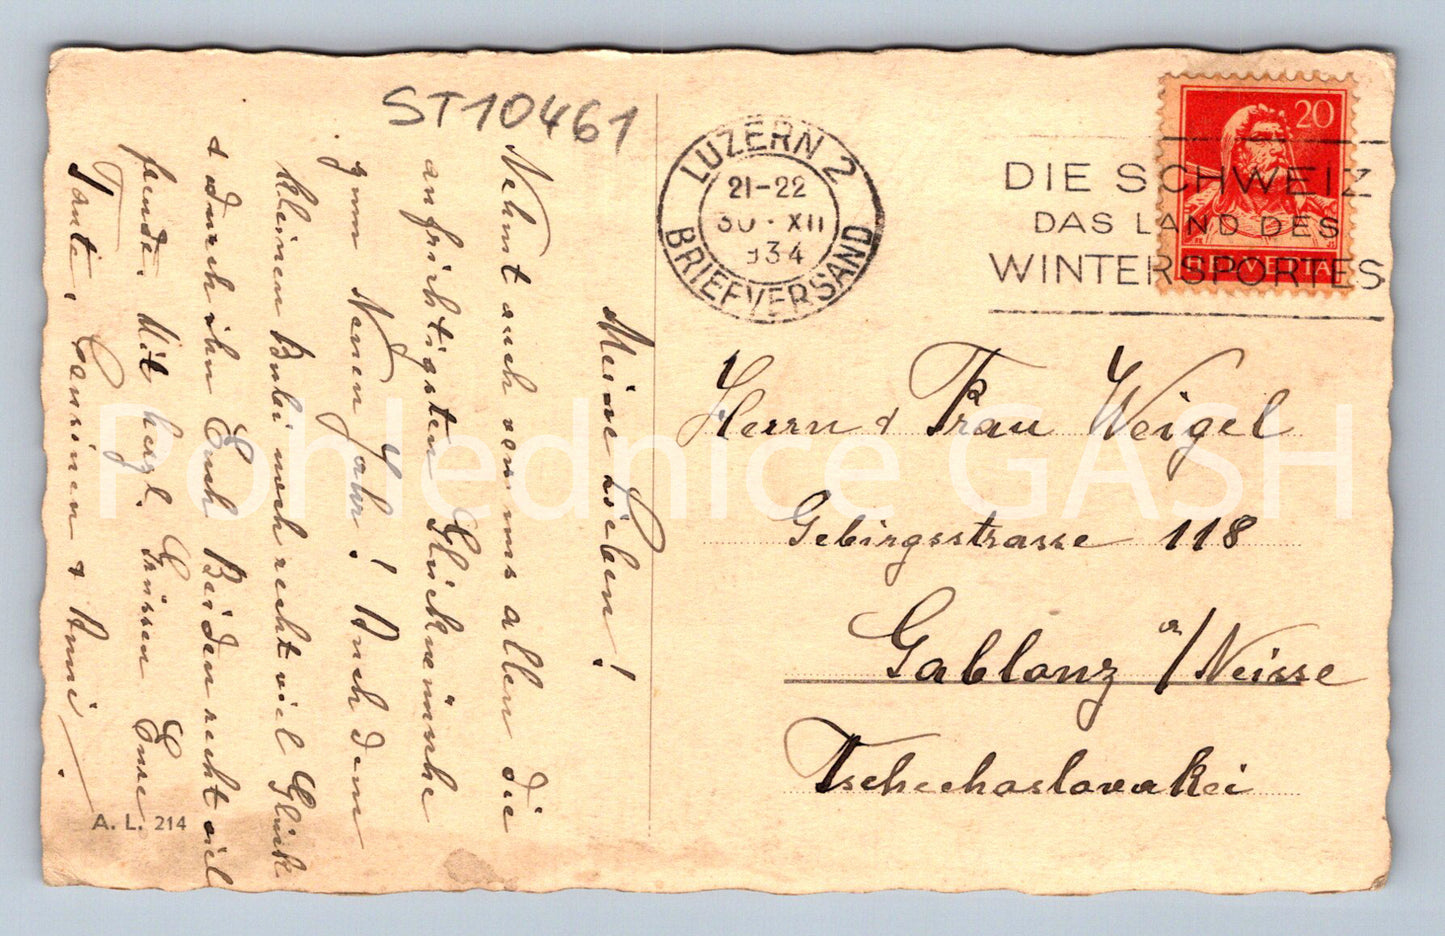 ST10461
LUZERN 2
21-22
30·XII
934
BRIEFVERSAND
DIE SCHWEIZ
DAS LAND DES
WINTERSPORTES
20
HELVETIA
Meine Lieben!
Nehmt auch von uns allen die
aufrichtigsten Glückwünsche
zum Neuen Jahr! Auch dem
kleinen Bubi noch recht viel Glück
& durch ihn Euch Beiden recht viel
freude. Mit herzl. Grüssen Eure
Tante, Cousinen & Anni.
Herrn & Frau Weigel
Gebirgsstrasse 118
Gablonz a/Neisse
Tschechoslovakei
A. L. 214
Pohlednice GASH